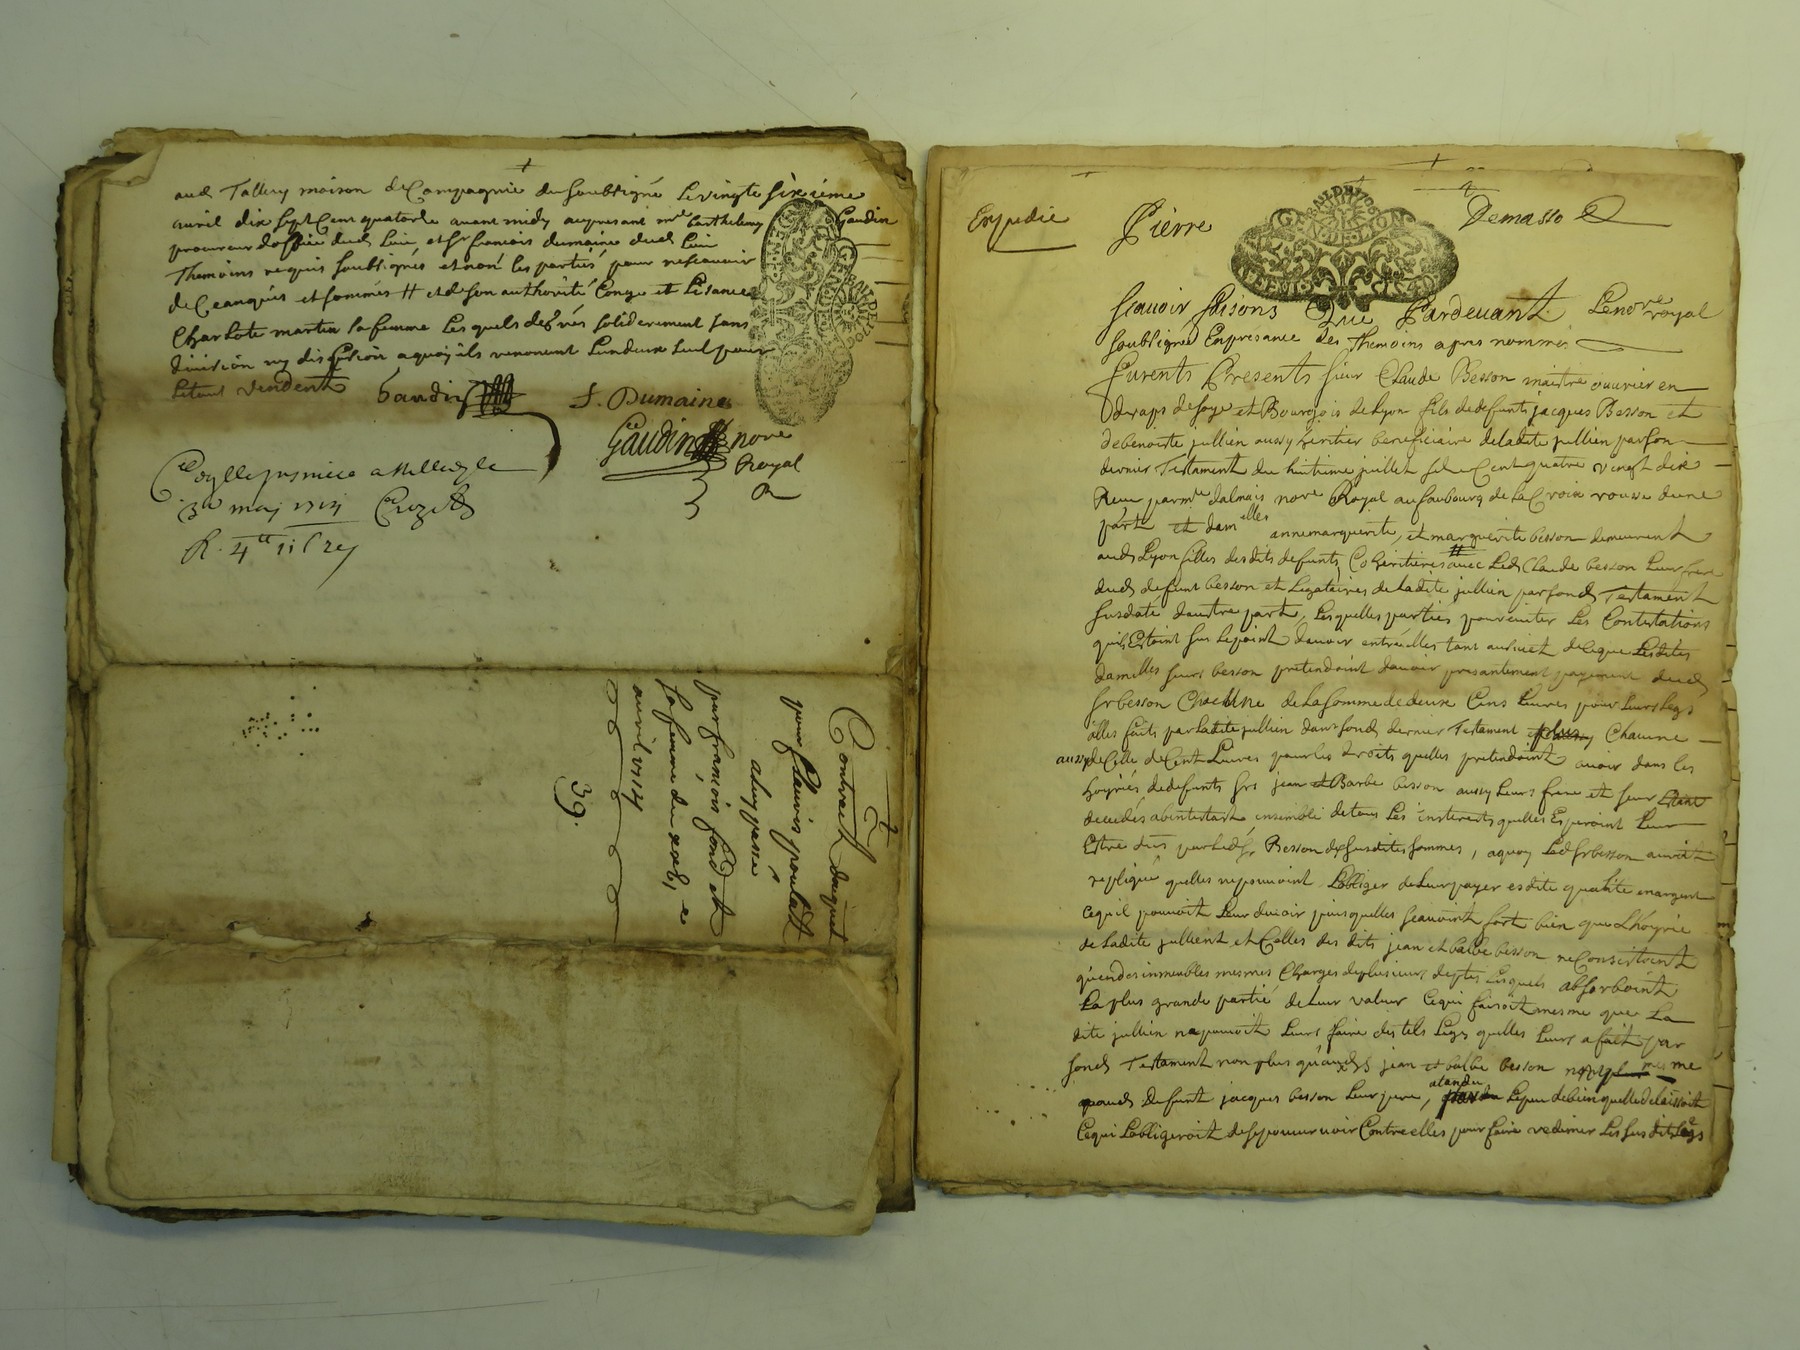 aud Tallery maison de Compagnie du soubsigné le vingte sixième
avril dix sept Cent quatorze avant midy au presant mre barthelemy Gaudin
procureur doffice dud lieu et sr francois dumaine dud lieu
Themoins requis soubsignés et non les parties pour ne scavoir
de ce anquis et sommés # et de son authorité Conge et Lisance
Charlote martin sa femme Les quels de grés soliderement sans
division ny discution a quoy ils renoncent Lun deux seul pour
Le tout vendent
Gaudin
f. Dumaine
Gaudin nore
Royal
3e may 1714 Crozet
R. 4
Contract dacquet
pour fleuris poulatt
a luy passé
par francois fond et
sa femme du 26e
avril 1714
39.
Expedie
Pierre
Demasso
GENERALITE DE LYON
Scavoir faisons Que Pardevant Le nore royal
soubsigné En presance des Themoins apres nommés
Furents Presents sieur Claude Besson maistre ouvrier en
draps de soye et Bourgois de Lyon fils de defunts jacques Besson et
de benoiste jullien aussy heritier beneficiaire de ladite jullien par son
dernier Testament du huitième juillet Cent quatre vingt dix
Receu par mre dalmais nore Royal au faubourg de la Croix rousse dune
part et damelles anne marguerite, et marguerite besson demeurent
aud Lyon filles des dits defunts Coheritieres # avec Led Claude besson Leur frere
dud defunt besson et Legataires de ladite jullien par sond Testament
susdaté dautre part, Lesquelles parties pour eviter Les Contestations
quils Estoint sur le point davoir entrelles tant au sujet de ce que Lesdites
damelles seurs besson pretendoint davoir presantement payement dud
sr besson Chacune de la somme de deux Cens Livres pour Leurs Legs
a elles faits par ladite jullien dans sond dernier Testament Chacune
aussy de Celle de Cent Livres pour les droits quelles pretendoint avoir dans les
hoyries de defunts srs jean et Barbe besson aussy Leurs frere et seur
decedés abintestat ensemble de tous Les interests quelles Esperoint Leur
Estre dus par led sr Besson des susdites sommes, a quoy Led sr besson auroit
repliqué quelles ne pouvoint Lobliger de Leur payer esdite qualité en argent
ce quil pouvoit Leur devoir puis quelles scavoint fort bien que Lhoyrie
de Ladite jullient et Celles des dits jean et balbe besson ne Consistoint
qu'en des inmeubles mesmes Charges de plusieurs debtes Lesquels absorboint
La plus grande partie de Leur valeur Ce qui faisoit mesme que La
dite jullien ne pouvoit Leurs faire des tels Legs quelles Leurs a fait par
sond Testament non plus que lesd jean et balbe besson mesme
dud defunt jacques besson Leur pere, atandu Le peu de bien quelle delaissoit
Ce qui Lobligeroit de se pourvoir Contre elles pour faire redimer Les susdits Legs